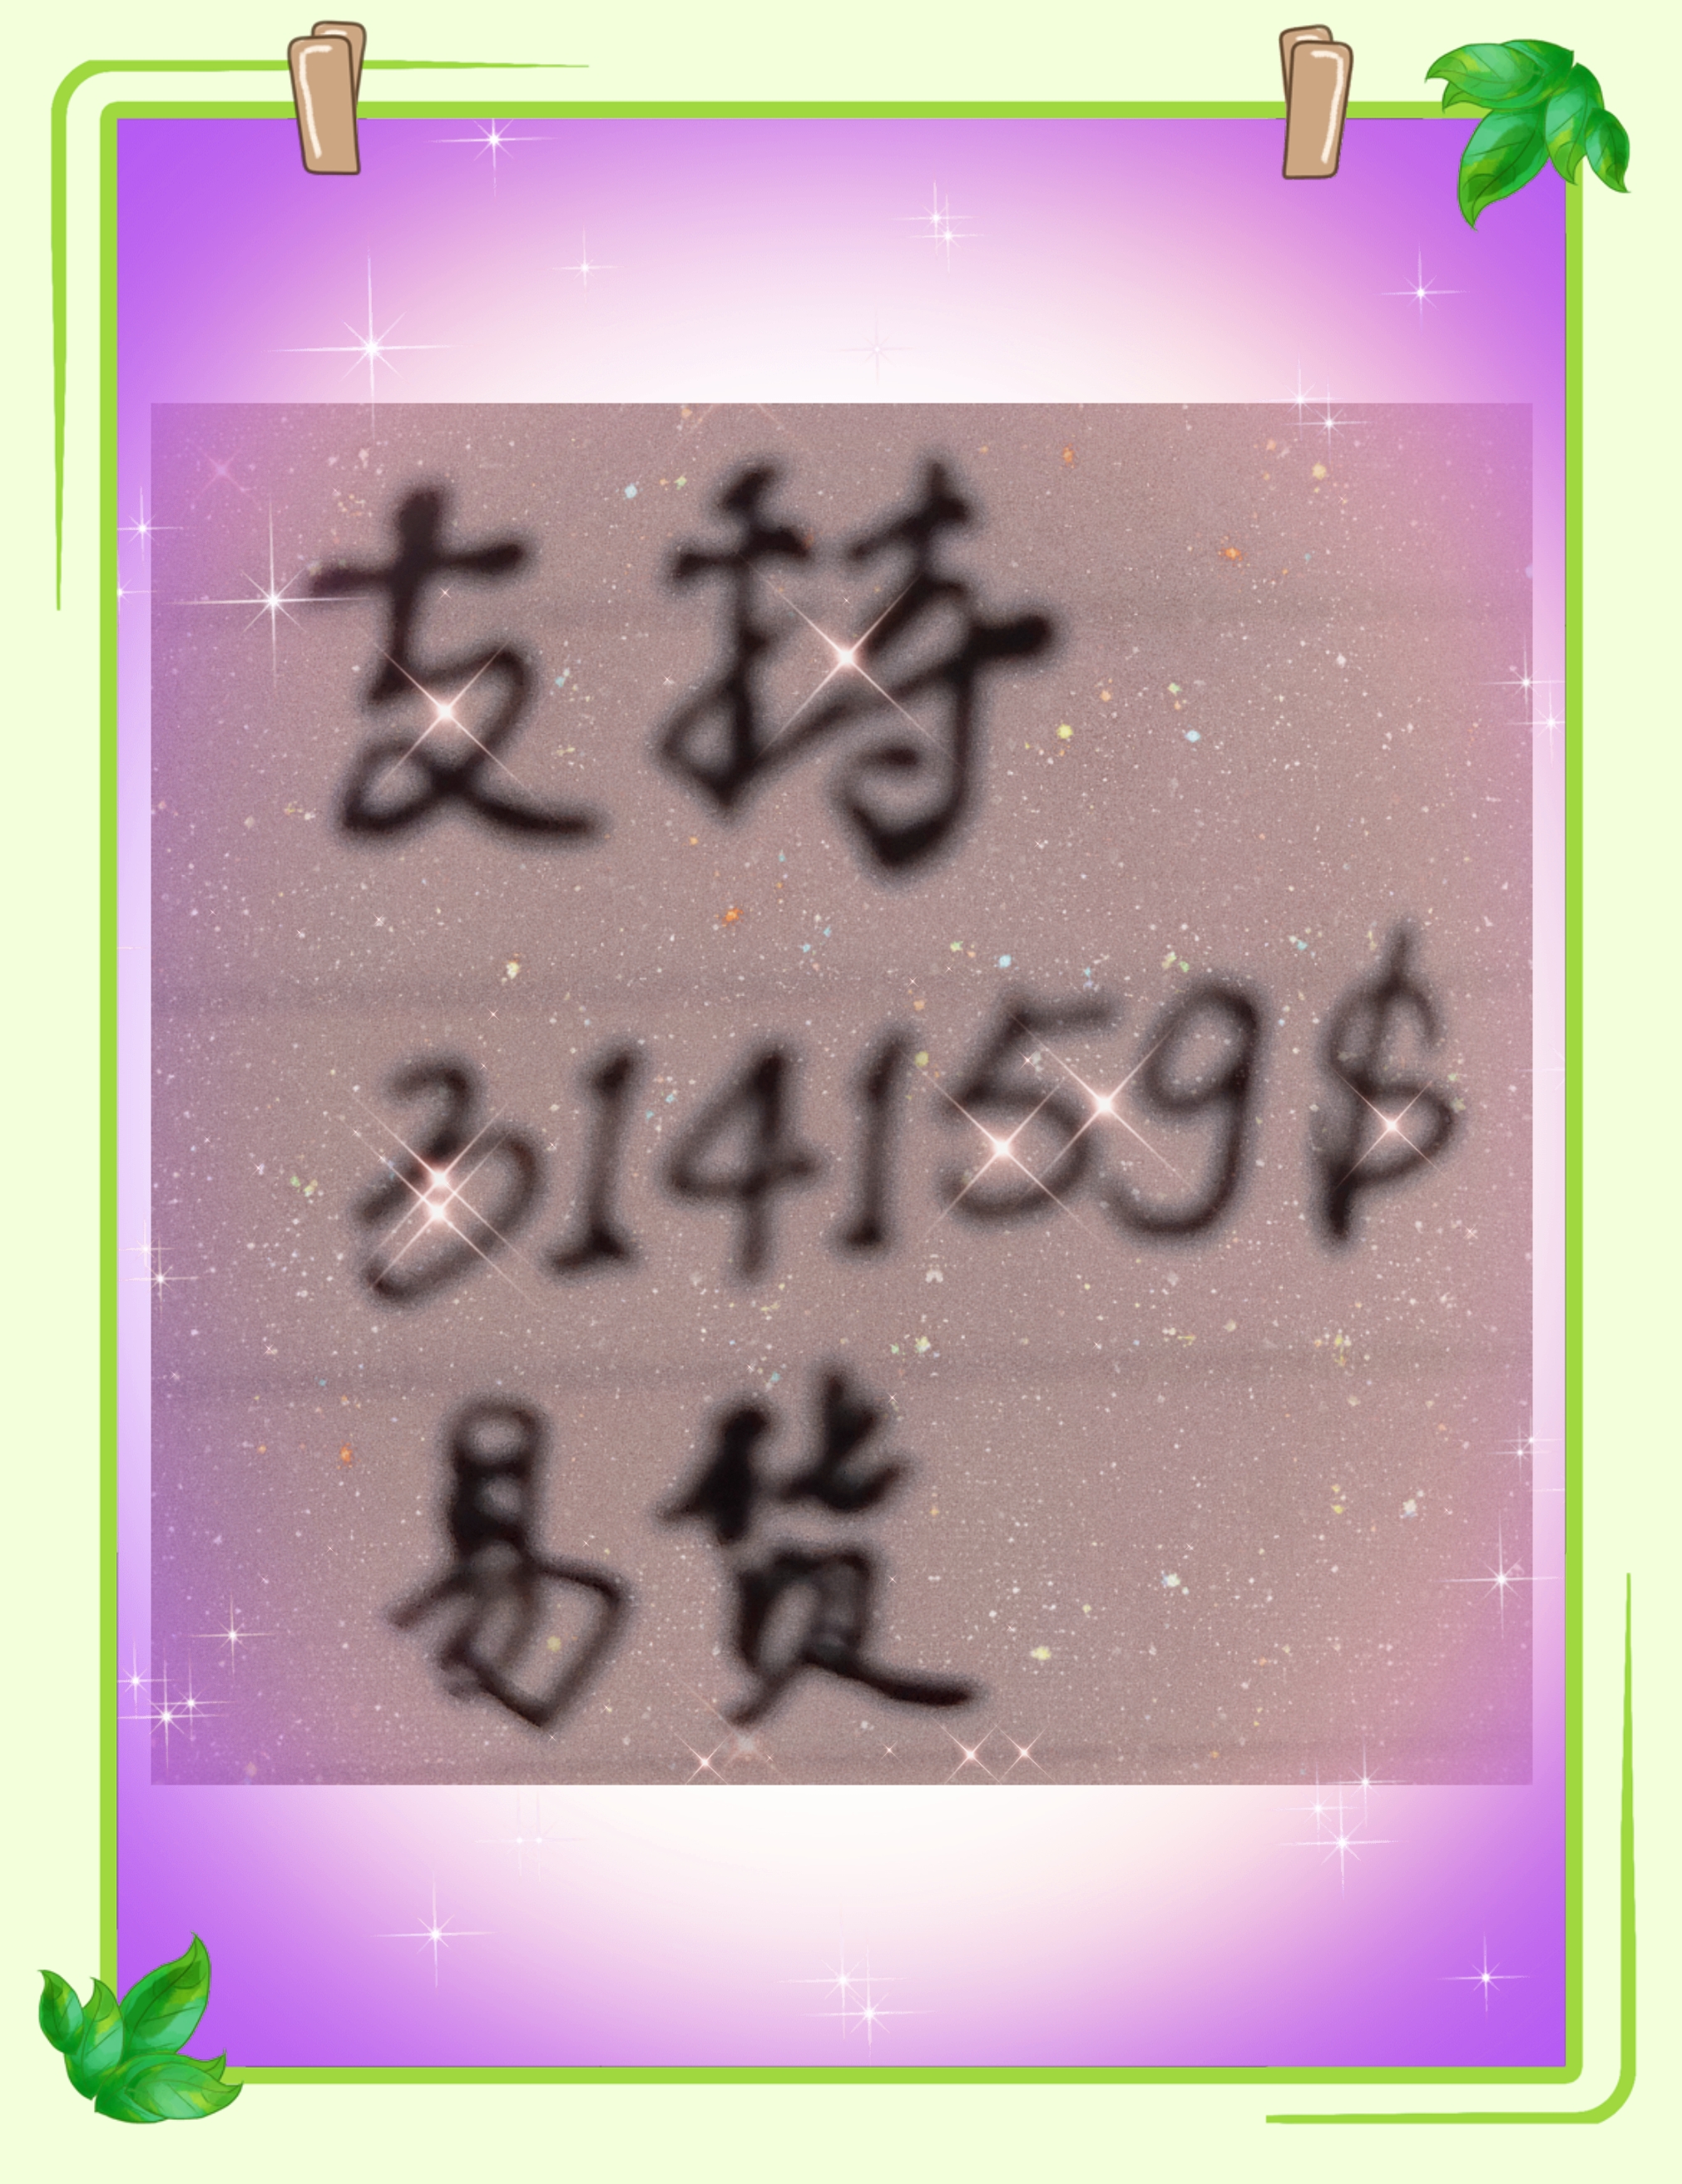 支持
314159$
易货